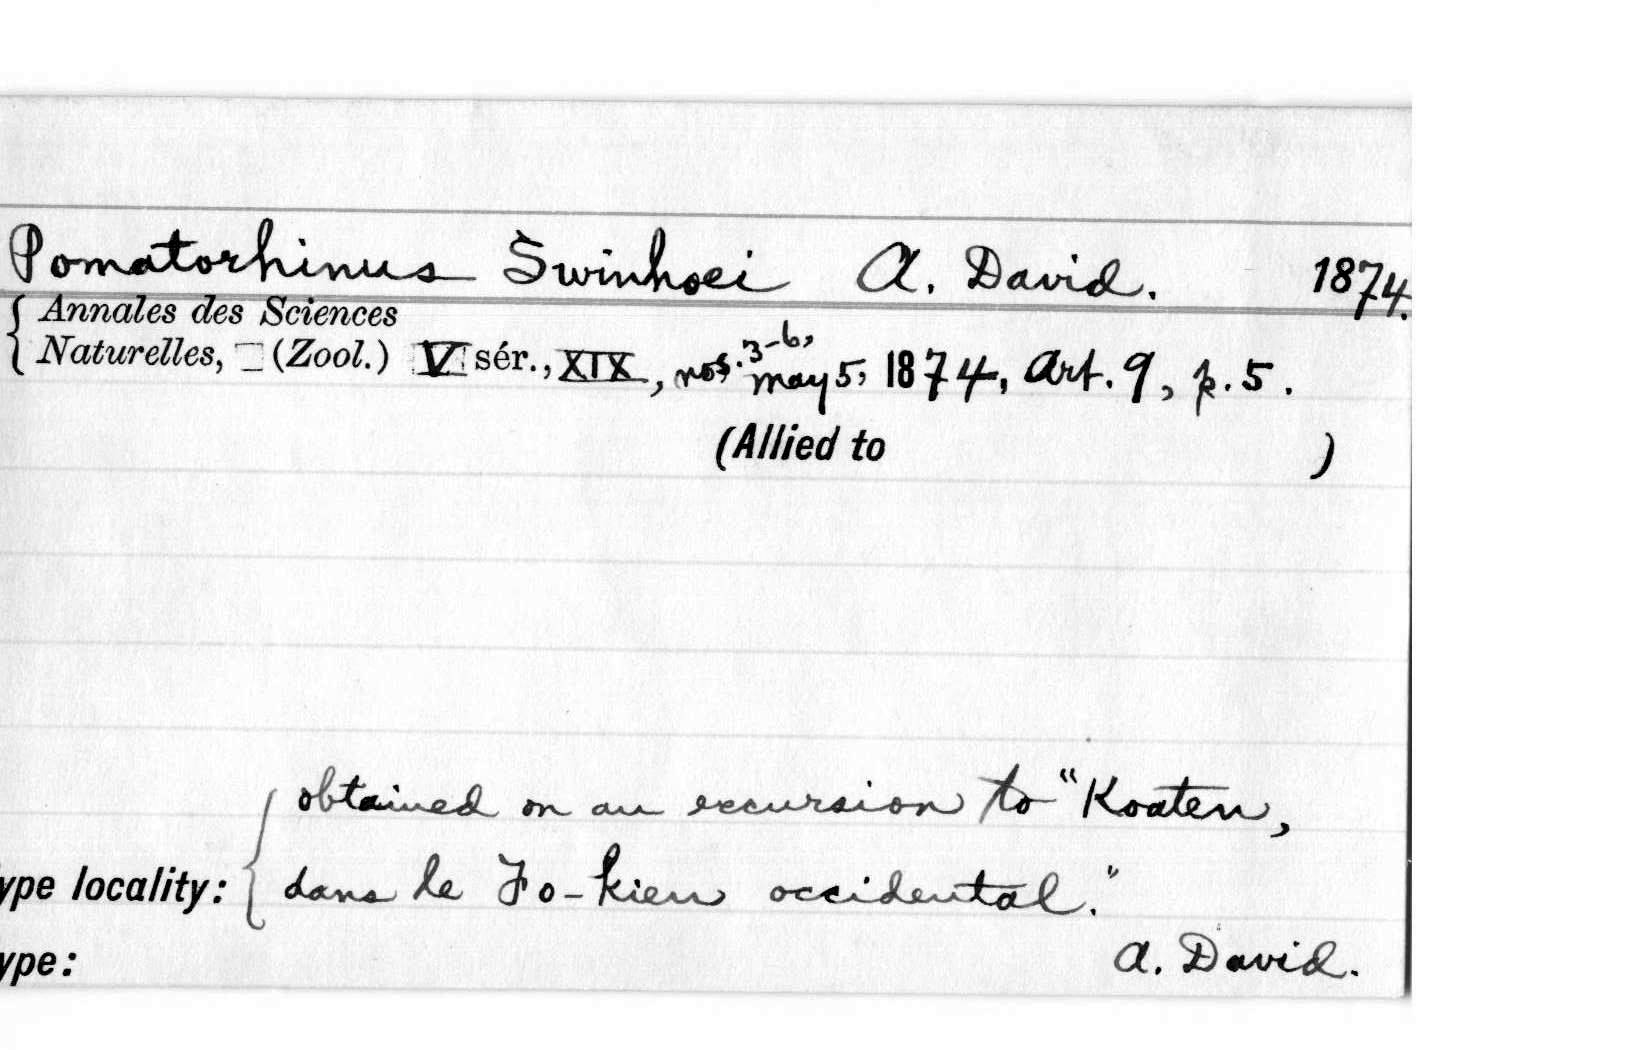 Pomatorhinus Swinhoei A. David. 1874.
Annales des Sciences
Naturelles, (Zool.) V sér., XIX, nos. 3-6, May 5, 1874, Art. 9, p. 5.
(Allied to )
obtained on an excursion to "Koaten,
ype locality: dans le Fo-kien occidental."
ype: A. David.